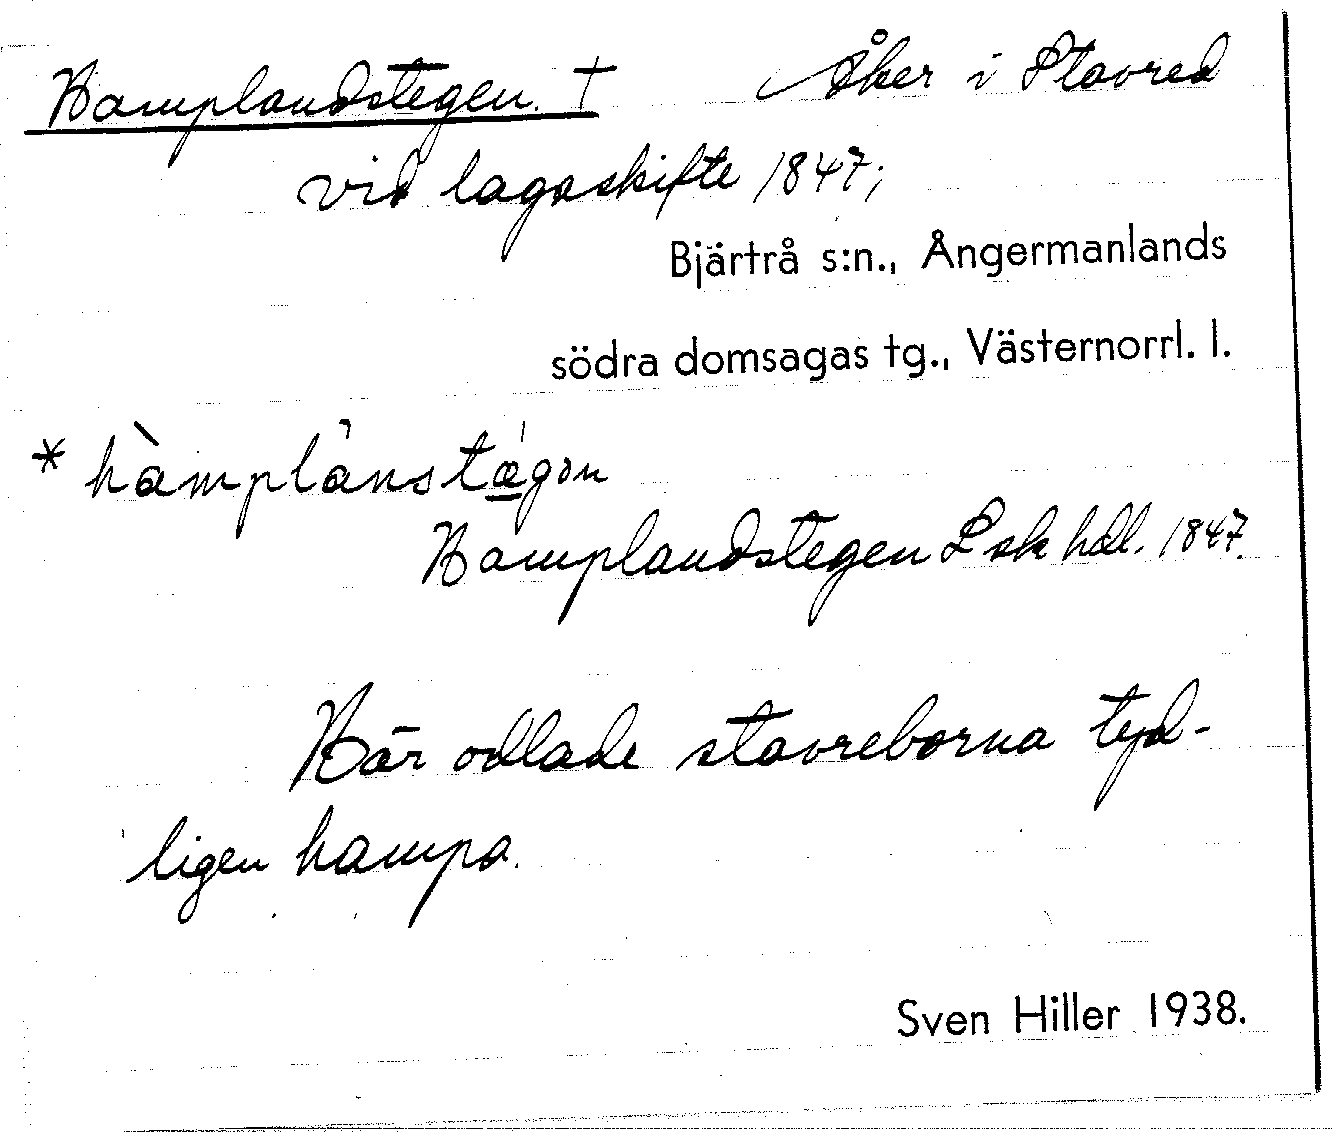 Hamplandstegen. † Åker i Stavred
vid lagaskifte 1847;
Bjärtrå s:n., Ångermanlands
södra domsagas tg., Västernorrl. l.
* hàmplànstægɘn
Hamplandstegen Lsk hdl. 1847.
Här odlade stavreborna tyd-
ligen hampa.
Sven Hiller 1938.